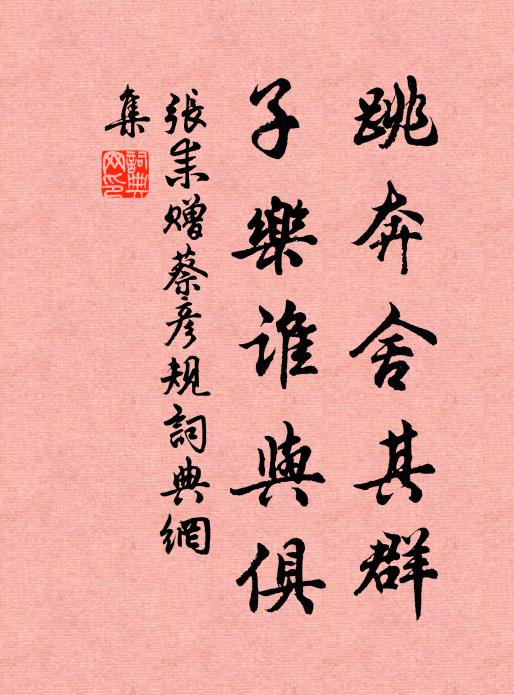 跳奔舍其群
子樂誰與俱
張耒贈蔡彥規詞典網
集
詞典
网印